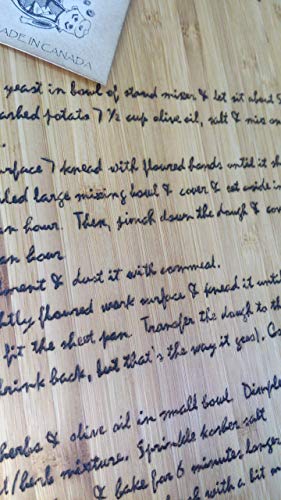 MADE IN CANADA
yeast in bowl of stand mixer & let sit about 5
ashed potato 7 ½ cup olive oil, salt & mix on
urface 7 knead with floured hands until it sh
iled large mixing bowl & cover & set aside in
an hour. Then, punch down the dough & cov
an hour.
hment & dust it with cornmeal.
ghtly floured work surface & knead it until
fit the sheet pan. Transfer the dough to th
hrink back, but that's the way it goes). Co
herbs & olive oil in small bowl. Dimple
l/herb mixture. Sprinkle kosher salt
& bake for 5 minutes longer
with a bit m